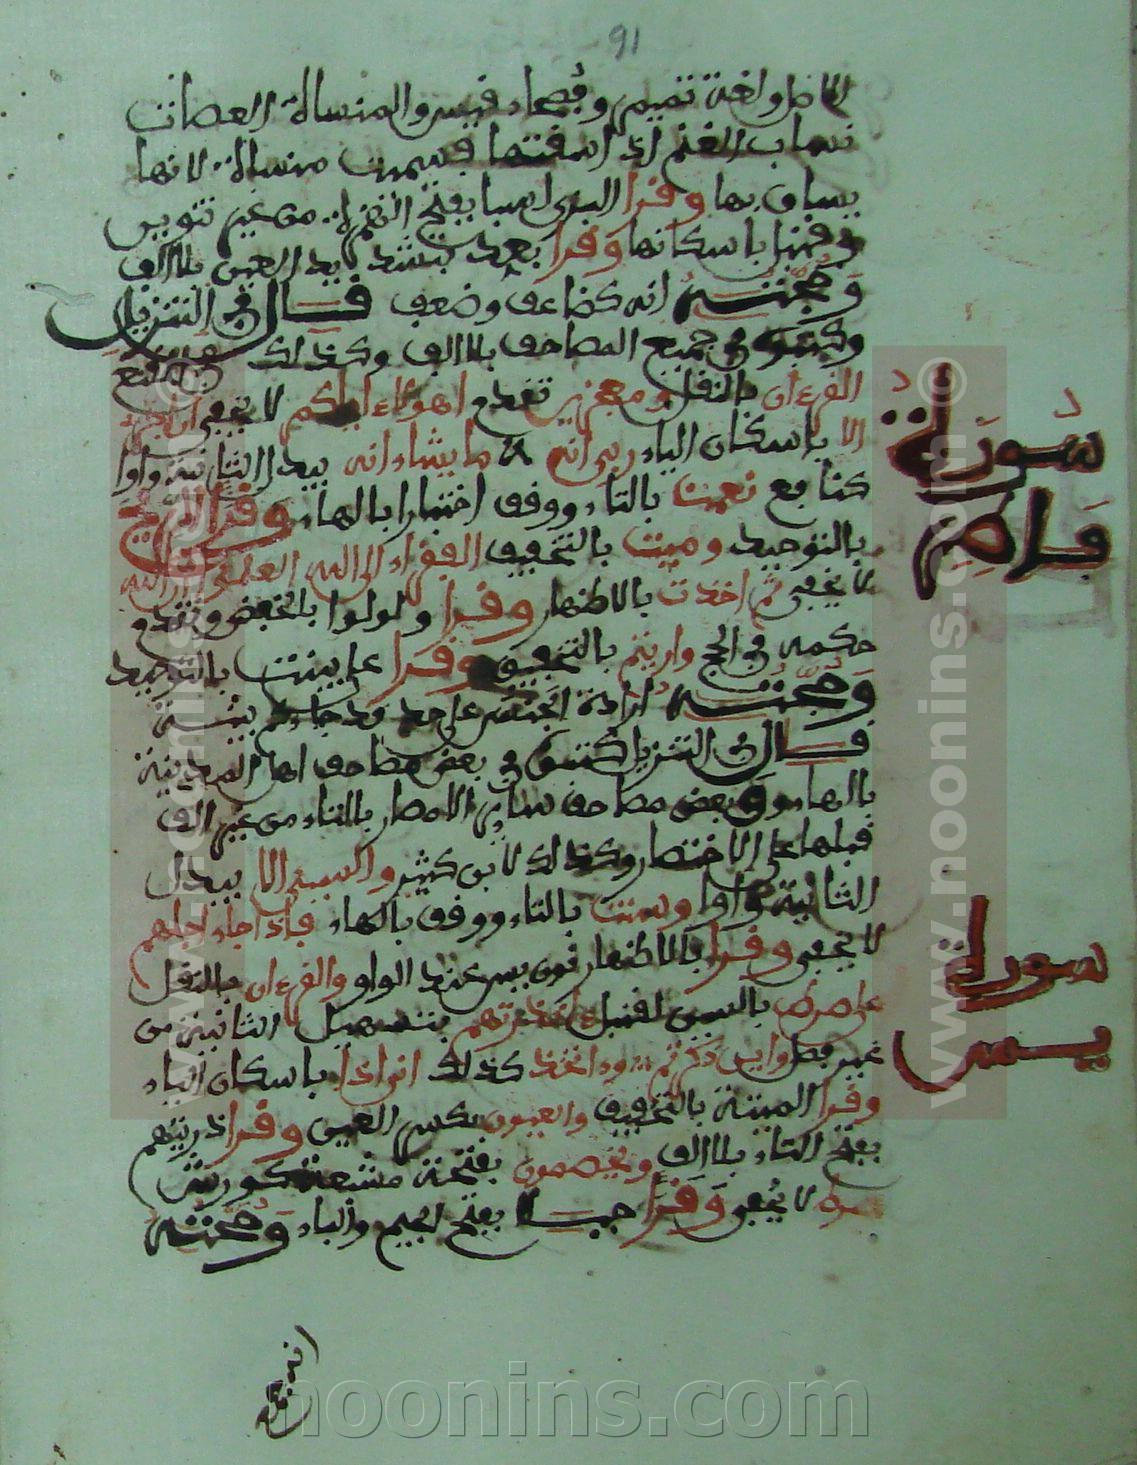 91
الاصل ولغة تميم وفصحاء قيس والمنسالة العصا
تساق بها الغنم اذا سقتها فسميت منسالة لانها
يساق بها وقرا البزي لسبا بفتح الهمزة من غير تنوين
وقنبل باسكانها وقرا بعد بتشديد العين بلا الف
وحجته انه كضاعف وضعف قال في التنزيل
وكتبوه في جميع المصاحف بلا الف وكذلك
القرءان بالنقل ومعجزين تقدم اهولاء اياكم لا يخفى ان اجري
الا باسكان الياء ربي انه ما يشاء انه يبدل الثانية واوا
كنافع نعمت بالتاء ووقف اختبارا بالهاء وقرا الريح
بالتوحيد وميت بالتخفيف الفقراء الى الله العلمؤا ان الله
لا يخفى ثم اخذت بالاظهار وقرا ولولوا بالخفض وتقدم
حكمه في الحج وارايتم بالتحقيق وقرا على بينت بالتوحيد
وحجته ارادة الجنس على حد قد جاءكم بينة
قال في التنزيل كتبوه في بعض مصاحف اهل المدينة
بالهاء وفي بعض مصاحف ساير الامصار بالتاء من غير الف
قبلها على الاختصار وكذلك لابن كثير والسيئ الا يبدل
الثانية واوا وسنت بالتاء ووقف بالهاء فاذا جاء اجلهم
لا يخفى وقرا بالاظهار نون يس عند الواو والقرءان بالنقل
على صرط بالسين لقنبل ءانذرتهم بتسهيل الثانية من
غير فصل واين ذكرتم ءاتخذ كذلك اني اذا باسكان الياء
وقرا الميتة بالتخفيف والعيون بكسر العين وقرا ذريتهم
بفتح التاء بلا الف ويخصمون بفتحة مشبعة كورش
لا يخفى وقرا جبلا بضم الجيم والباء وحجته
سورة
فاطر
سورة
يس